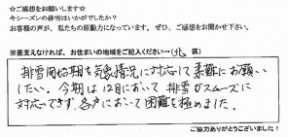 ☆ご感想をお願いします☆
今シーズンの排雪はいかがでしたか？
お客様の声が、私たちの原動力になっています。ぜひ、ご感想をお聞かせ下さい。
※差支えなければ、お住まいの地域をご記入ください→(北 区)
排雪開始期を気象情況に対応して柔軟にお願い
したい。今期は12月において排雪がスムーズに
対応できず、各戸において困難を極めました。
ご協力ありがとうございました！